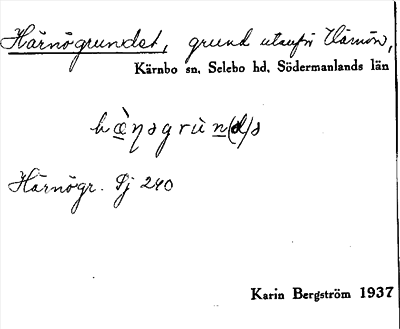 Härnögrundet, grund utanför Härnön,
Kärnbo sn, Selebo hd, Södermanlands län
Härnögr. Sj 240
Karin Bergström 1937